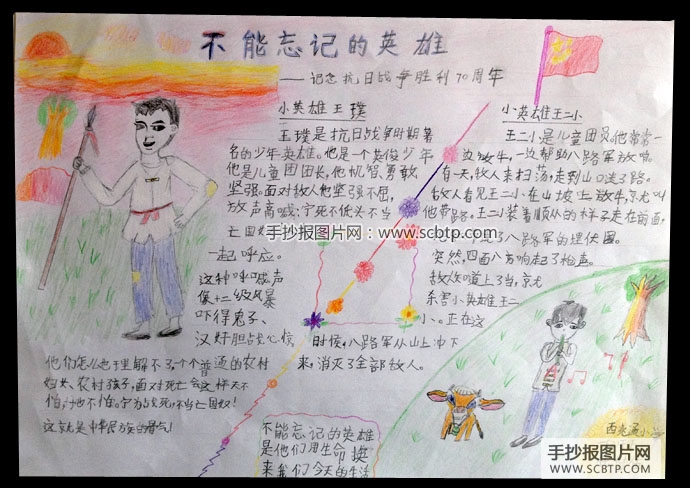 不能忘记的英雄
——记念抗日战争胜利70周年
小英雄王璞
王璞是抗日战争时期著
名的少年英雄。他是一个英俊少年
他是儿童团团长,他机智、勇敢
坚强。面对敌人他坚强不屈,
放声高喊:宁死不低头不当
亡国奴
一起呼应。
这种呼喊声
像十二级风暴
吓得鬼子、
汉奸胆占心惊
他们怎么也理解不了,个个普通的农村
妇女、农村孩子,面对死亡会这样天不
怕,地不怕。宁为战死,不当亡国奴!
这就是中华民族的骨气!
小英雄王二小
王二小是儿童团员,他常常一
边放牛,一边帮助八路军放哨
有一天,敌人来扫荡,走到山口迷了路。
敌人看见王二小在山坡上放牛,就叫
他带路。王二小装着顺从的样子走在前面,
了八路军的埋伏圈。
突然,四面八方响起了枪声。
敌人知道上了当,就
杀害小英雄王二
小。正在这
时候,八路军从山上冲下
来,消灭了全部敌人。
不能忘记的英雄
是他们用生命换
来我们今天的生活
西 小学
手抄报图片网:www.scbtp.com
手抄报图片网
WWW.SCBTP.COM